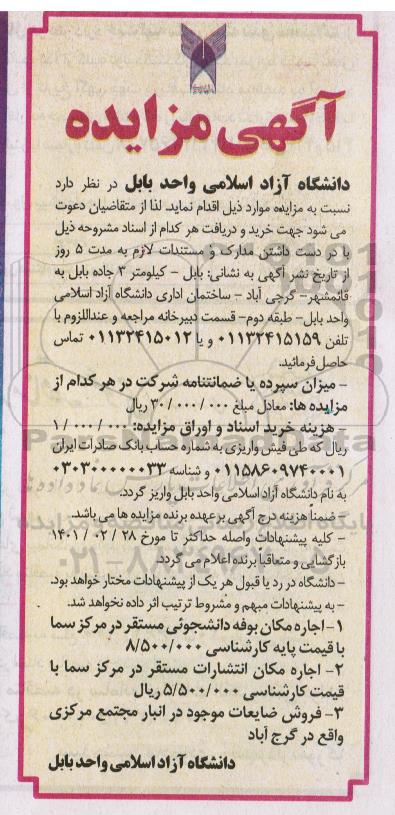 آگهی مزایده
دانشگاه آزاد اسلامی واحد بابل در نظر دارد
نسبت به مزایده موارد ذیل اقدام نماید. لذا از متقاضیان دعوت
می شود جهت خرید و دریافت هر کدام از اسناد مشروحه ذیل
با در دست داشتن مدارک و مستندات لازم به مدت ۵ روز
از تاریخ نشر آگهی به نشانی: بابل - کیلومتر ۳ جاده بابل به
قائمشهر- گرجی آباد - ساختمان اداری دانشگاه آزاد اسلامی
واحد بابل- طبقه دوم- قسمت دبیرخانه مراجعه و عنداللزوم با
تلفن ۰۱۱۳۲۴۱۵۱۵۹ و یا ۰۱۱۳۲۴۱۵۰۱۲ تماس
حاصل فرمائید.
- میزان سپرده یا ضمانتنامه شرکت در هر کدام از
مزایده ها: معادل مبلغ ۳۰/۰۰۰/۰۰۰ ریال
- هزینه خرید اسناد و اوراق مزایده: ۱/۰۰۰/۰۰۰
ریال که طی فیش واریزی به شماره حساب بانک صادرات ایران
۰۱۱۵۸۶۰۹۷۴۰۰۰۱ و شناسه ۰۳۰۳۰۰۰۰۰۰۳۳
به نام دانشگاه آزاد اسلامی واحد بابل واریز گردد.
- ضمناً هزینه درج آگهی بر عهده برنده مزایده ها می باشد.
- کلیه پیشنهادات واصله حداکثر تا مورخ ۲۸ / ۰۲ / ۱۴۰۱
بازگشایی و متعاقبا برنده اعلام می گردد.
- دانشگاه در رد یا قبول هر یک از پیشنهادات مختار خواهد بود.
- به پیشنهادات مبهم و مشروط ترتیب اثر داده نخواهد شد.
۱- اجاره مکان بوفه دانشجوئی مستقر در مرکز سما
با قیمت پایه کارشناسی ۸/۵۰۰/۰۰۰
۲- اجاره مکان انتشارات مستقر در مرکز سما با
قیمت کارشناسی ۵/۵۰۰/۰۰۰ ریال
۳- فروش ضایعات موجود در انبار مجتمع مرکزی
واقع در گرج آباد
دانشگاه آزاد اسلامی واحد بابل